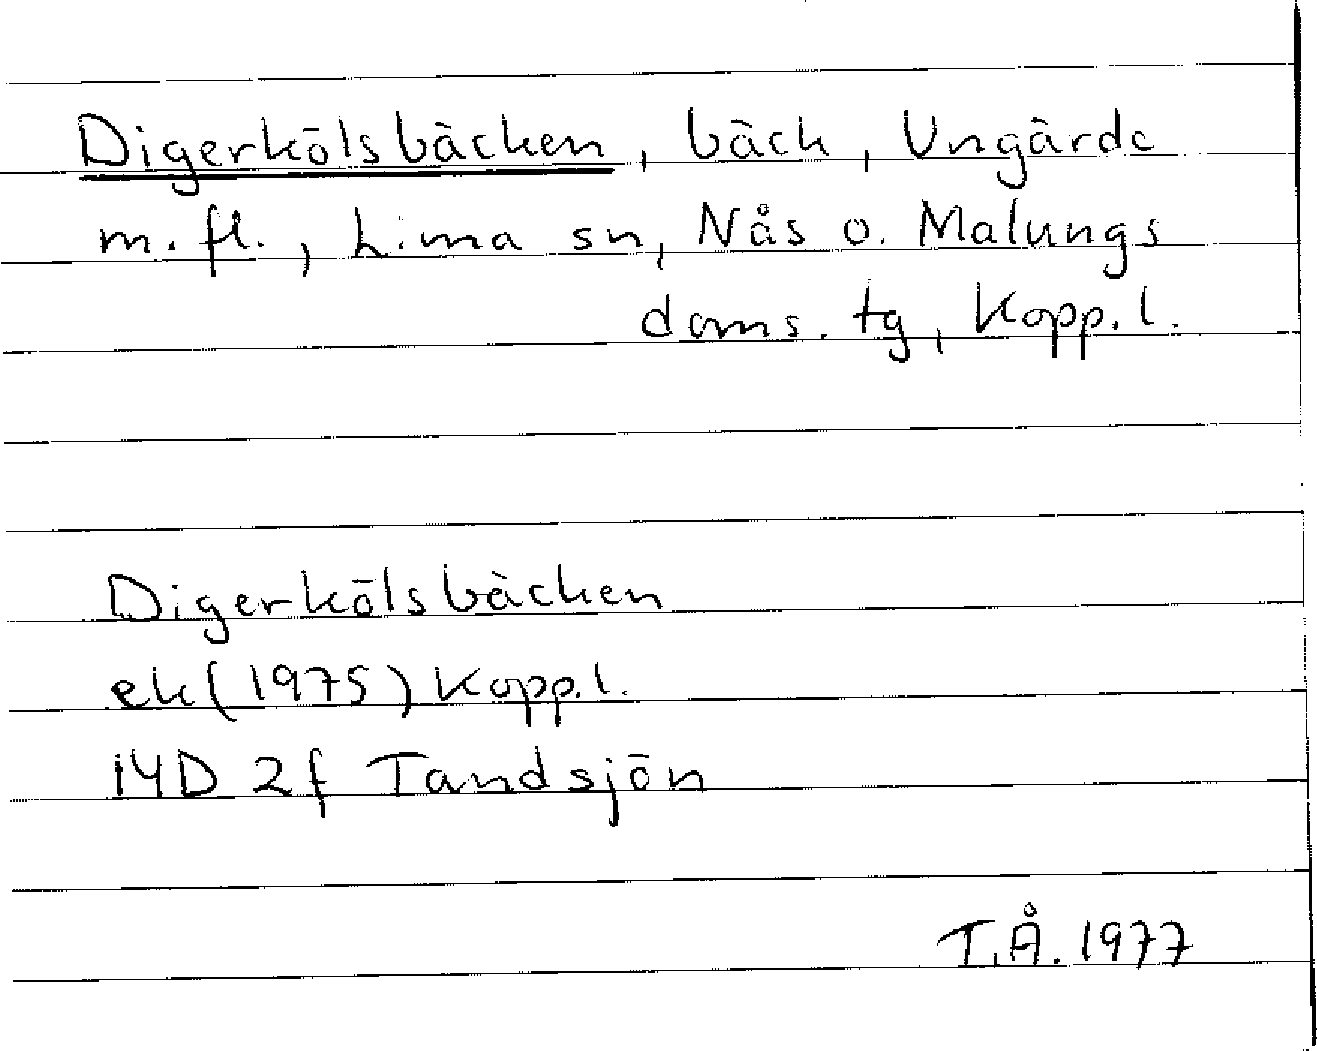 Digerkölsbäcken, bäck, Ungärde
m. fl., Lima sn, Nås o. Malungs
doms. tg, Kopp. l.
Digerkölsbäcken
ek (1975) Kopp. l.
14D 2f Tandsjön
T.Å. 1977